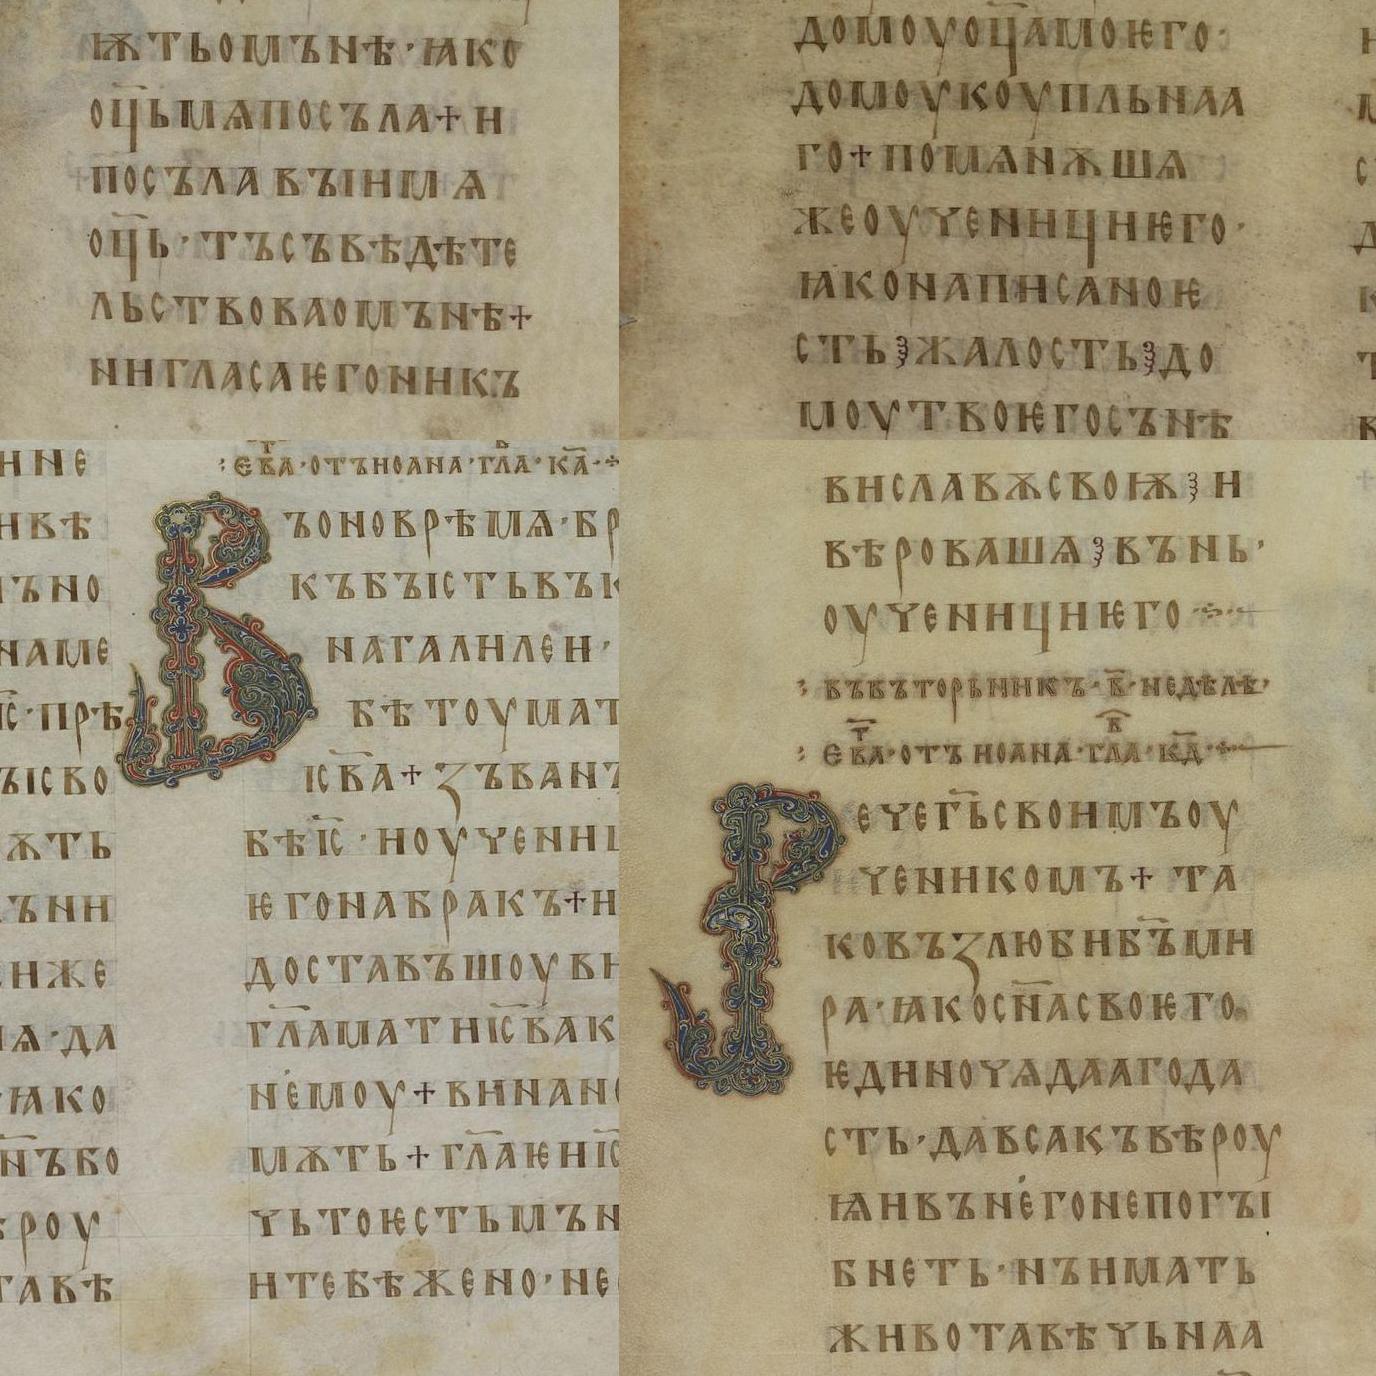 ѭтьомънѣ·ꙗко
оц҃ьмѧпосъла+н
посълавъıнмѧ
оц҃ь·тъсъвѣдѣте
льствоваомънѣ+
ннгласаѥгоннкъ
домоуоц҃амоѥго·
домоукоупльнаа
го+помѧнѫшѧ
жеоученнцнѥго·
ꙗконапнсаноѥ
стьжалостьдо
моутвоѥгосънѣ
нне
нвѣ
ъно
наме
іс҃·прѣ
ъісво
ѫть
ънн
нже
ѧ·да
ꙗко
н҃ъбо
роу
авѣ
ев҃а·отъноана·гл҃а·ка҃·
Въоноврѣмѧ·бр
къбъıстьвък
нагалнлен·
бѣтоумат
ісв҃а+ꙁъван
бѣіс҃·ноученн
ѥгонабракъ+н
доставъшоувн
гл҃аматніс҃вак
немоу+внна
мѫть+гл҃аѥніс҃
чьтоѥстьмън
нтебѣжено·не
внславѫсвоѭн
вѣровашѧвънь·
оуученнцнѥго
въвъторьннкъ·в҃·недѣлѣ·
ев҃а·отъноана·гл҃а·кд҃·
Речег҃ьсвонмъоу
ченнкомъ+та
ковъꙁлюбнб҃ъмн
ра·ꙗкосн҃асвоѥго
ѥднночѧдаагода
сть·давсакъвѣроу
ѩнвънегонепогъı
бнеть·нънмать
жнвотавѣчьнаа